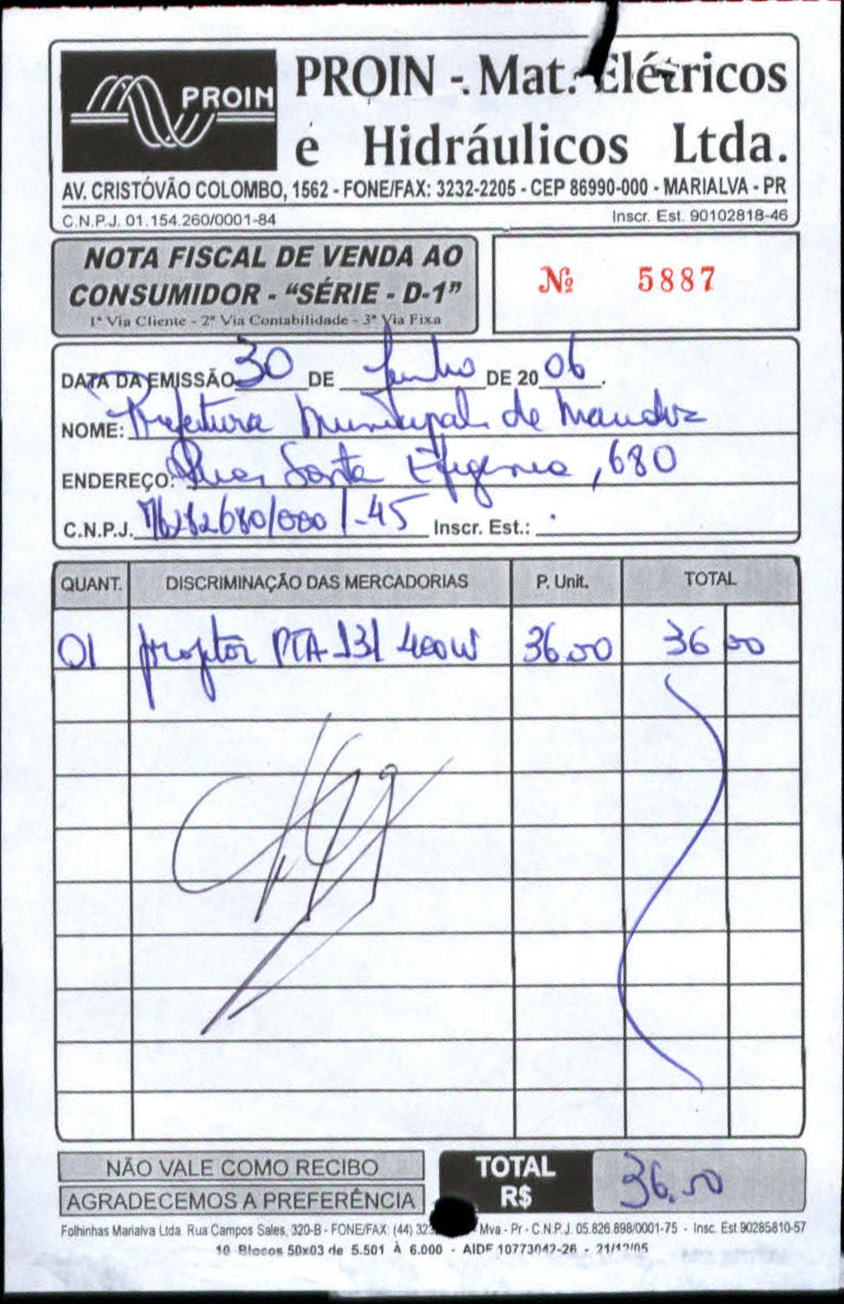 PROIN
PROIN - Mat. Elétricos
e Hidráulicos Ltda.
AV. CRISTÓVÃO COLOMBO, 1562 - FONE/FAX: 3232-2205 - CEP 86990-000 - MARIALVA - PR
C.N.P.J. 01.154.260/0001-84 Inscr. Est. 90102818-46
NOTA FISCAL DE VENDA AO
CONSUMIDOR - “SÉRIE - D-1”
1ª Via Cliente - 2ª Via Contabilidade - 3ª Via Fixa
Nº 5887
DATA DA EMISSÃO 30 DE Junho DE 20 06.
NOME: Prefeitura Municipal de
ENDEREÇO: Rua Santa Efigenia, 680
C.N.P.J. Inscr. Est.:
QUANT. DISCRIMINAÇÃO DAS MERCADORIAS P. Unit. TOTAL
01 projetor PTA 131 400W 36,00 36 00
NÃO VALE COMO RECIBO
AGRADECEMOS A PREFERÊNCIA
TOTAL
R$ 36,00
Folhinhas Marialva Ltda. Rua Campos Sales, 320-B - FONE/FAX: (44) Mva - Pr - C.N.P.J. 05.826.898/0001-75 - Insc. Est. 90285810-57
10 Blocos 50x03 de 5.501 À 6.000 - AIDF 10773042-26 - 21/12/05